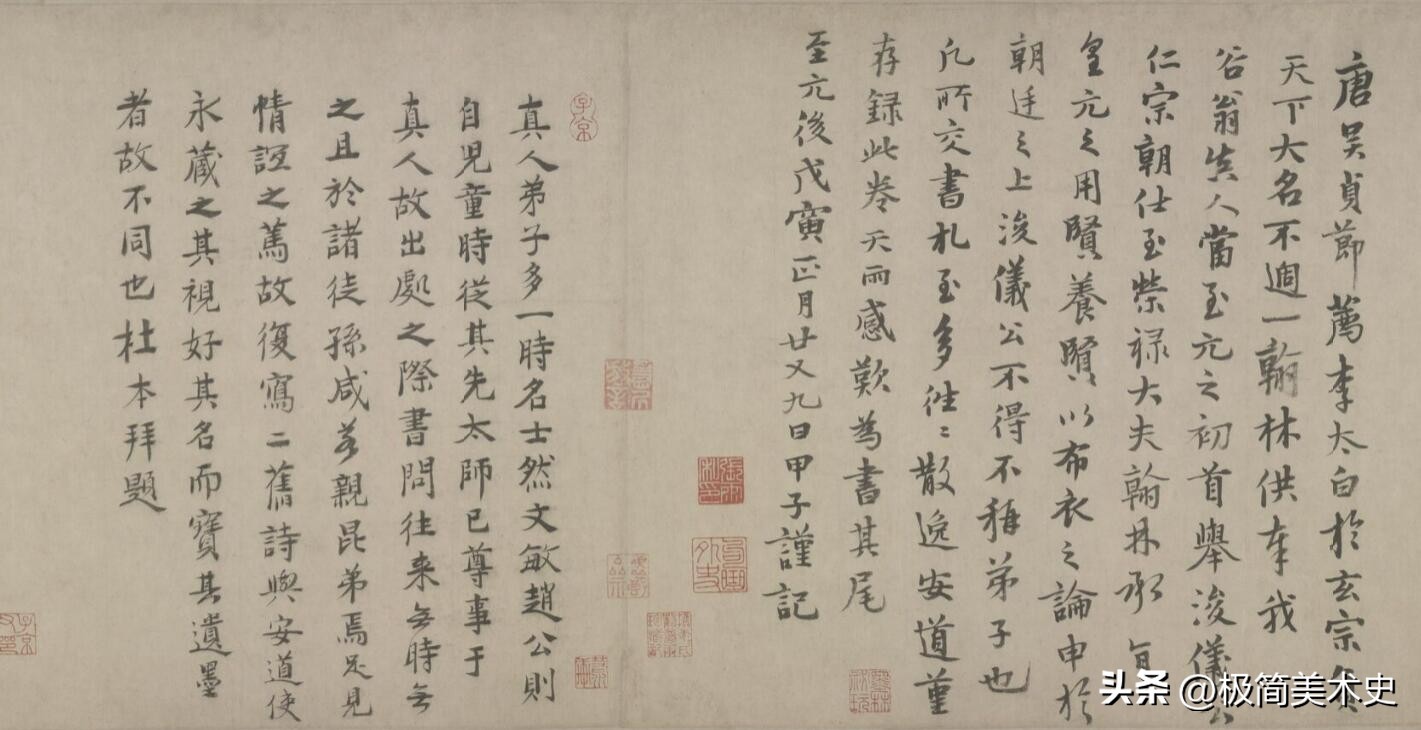 唐吴貞節薦李太白於玄宗
天下大名不過一翰林供奉我
谷翁真人當至元之初首舉浚儀公
仁宗朝仕至榮禄大夫翰林承旨
皇元之用賢養賢以布衣之論申於
朝廷之上浚儀公不得不稱弟子也
凡所交書札至多往〻散逸安道堇
存録此卷天雨感歎為書其尾
至元後戊寅正月廿又九日甲子謹記
真人弟子多一時名士然文敏趙公則
自児童時從其先太師已尊事于
真人故出處之際書問往来無時無
之且於諸徒孫咸若親昆弟焉足見
情誼之篤故復寫二舊詩與安道使
永藏之其視好其名而寶其遺墨
者故不同也杜本拜題
子京
头条 @极简美术史